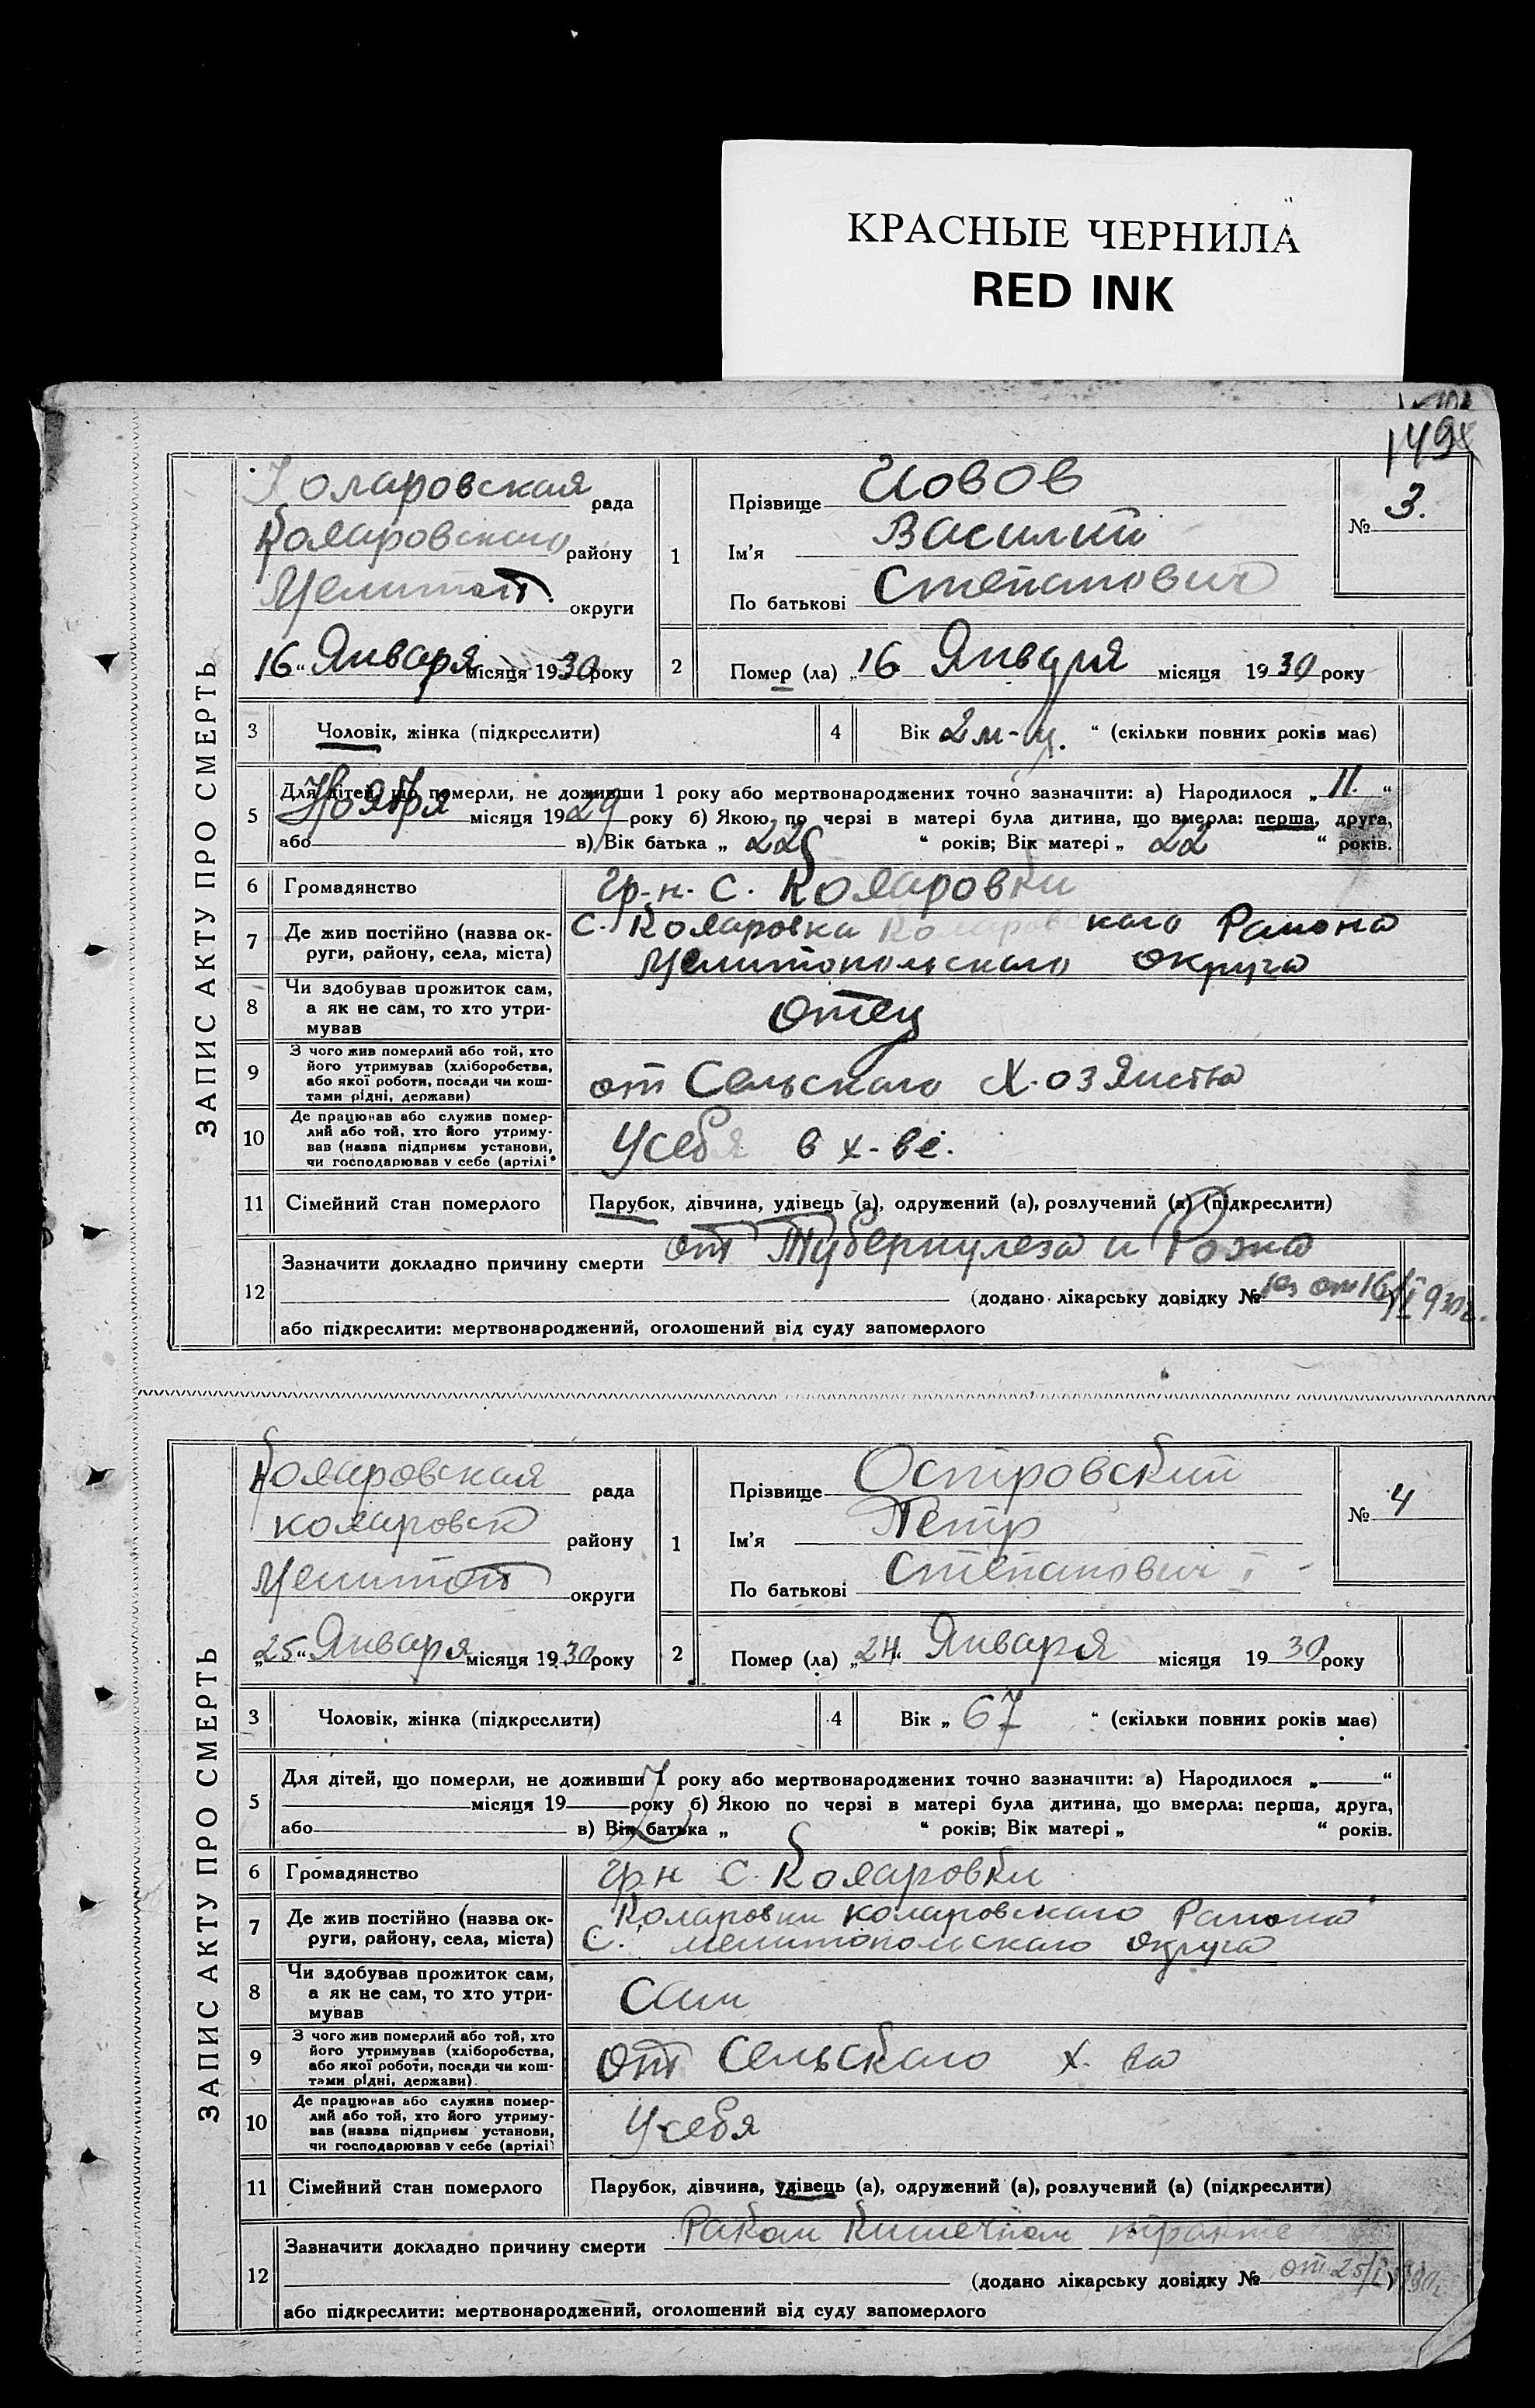 КРАСНЫЕ ЧЕРНИЛА
RED INK
149
ЗАПИС АКТУ ПРО СМЕРТЬ
Коларовская рада
Коларовского району
Мелитоп. округи
16 " Января місяця 1930 року
1
Прізвище Иовов
Ім'я Василий
По батькові Степанович
№ 3.
2
Помер (ла) „ 16 Января місяця 1930 року
3
Чоловік, жінка (підкреслити)
4
Вік 2 м-ц. " (скільки повних років має)
5
Для дітей, що померли, не доживши 1 року або мертвонароджених точно зазначити: а) Народилося „ 11. "
Ноября місяця 1929 року б) Якою по черзі в матері була дитина, що вмерла: перша, друга,
або в) Вік батька „ 22 " років; Вік матері „ 22 " років.
6
Громадянство гр-н. С. Коларовки
7
Де жив постійно (назва округи, району, села, міста)
С. Коларовка Коларовскаго Района
Мелитопольскаго округа
8
Чи здобував прожиток сам,
а як не сам, то хто утримував
Отец
9
З чого жив померлий або той, хто
його утримував (хліборобства,
або якої роботи, посади чи коштами рідні, держави)
от Сельскаго Х-озяиства
10
Де працював або служив померлий або той, хто його утримував (назва підприєм установи,
чи господарював у себе (артілі
Усебя в х-ве.
11
Сімейний стан померлого
Парубок, дівчина, удівець (а), одружений (а), розлучений (а) (підкреслити)
12
Зазначити докладно причину смерти от Туберкулеза и Рожа
(додано лікарську довідку № от 16/I 930г.
або підкреслити: мертвонароджений, оголошений від суду запомерлого
ЗАПИС АКТУ ПРО СМЕРТЬ
Коларовская рада
коларовск району
Мелитоп округи
„25" Января місяця 1930 року
1
Прізвище Островский
Ім'я Петр
По батькові Степанович
№ 4
2
Помер (ла) „24. Января місяця 1930 року
3
Чоловік, жінка (підкреслити)
4
Вік „ 67 " (скільки повних років має)
5
Для дітей, що померли, не доживши 1 року або мертвонароджених точно зазначити: а) Народилося „ "
місяця 19 року б) Якою по черзі в матері була дитина, що вмерла: перша, друга,
або в) Вік батька „ " років; Вік матері „ " років.
6
Громадянство гр н С. Коларовки
7
Де жив постійно (назва округи, району, села, міста)
С. Коларовки коларовскаго Района
мелитопольскаго округа
8
Чи здобував прожиток сам,
а як не сам, то хто утримував
Сам
9
З чого жив померлий або той, хто
його утримував (хліборобства,
або якої роботи, посади чи коштами рідні, держави)
От Сельскаго х-ва
10
Де працював або служив померлий або той, хто його утримував (назва підприєм установи,
чи господарював у себе (артілі)
Усебя
11
Сімейний стан померлого
Парубок, дівчина, удівець (а), одружений (а), розлучений (а) (підкреслити)
12
Зазначити докладно причину смерти Раком Кишечном тракте
(додано лікарську довідку № от 25/I 930г.)
або підкреслити: мертвонароджений, оголошений від суду запомерлого